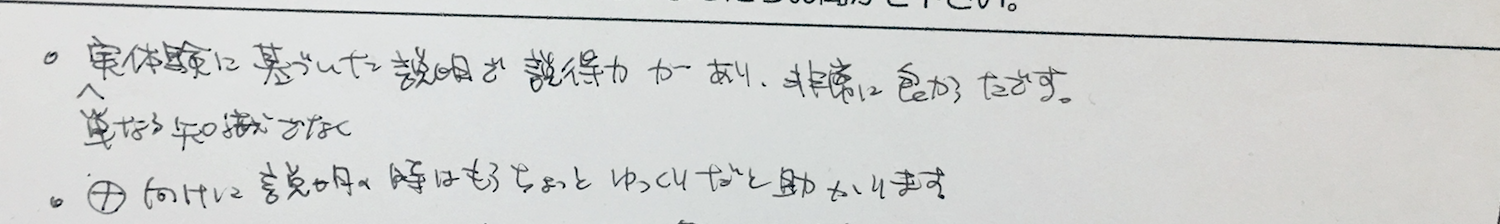 。実体験に基づいた説明で説得力があり、非常に良かったです。
単なる知識でなく
。㊉向けに説明の時はもうちょっとゆっくりだと助かります